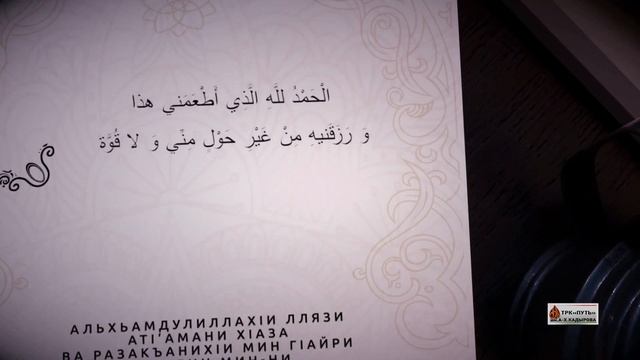 الْحَمْدُ للَّهِ الَّذِي أَطْعَمَني هذا
وَ رَزَقَنيه مِنْ غَيْرِ حَوْلٍ مِنِّي وَ لا قُوَّة
АЛЬХЬАМДУЛИЛЛАХIИ ЛЛЯЗИ
АТI'АМАНИ ХIАЗА
ВА РАЗАКЪАНИХIИ МИН ГIАЙРИ
МИН-НИ
ТРК«ПУТЬ»
ИМ.А-Х.КАДЫРОВА